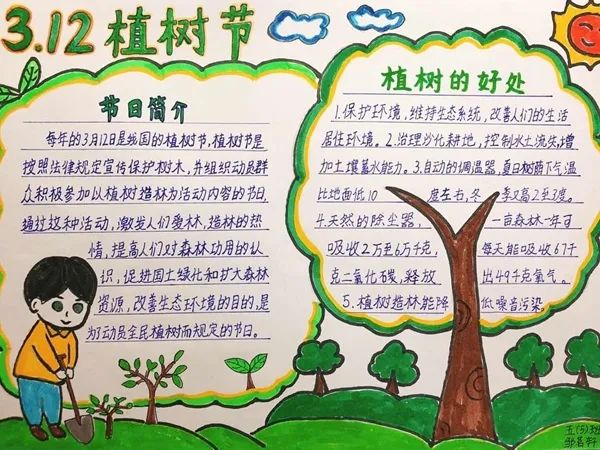 3.12植树节
节日简介
每年的3月12日是我国的植树节,植树节是
按照法律规定宣传保护树木,并组织动员群
众积极参加以植树造林为活动内容的节日.
通过这种活动,激发人们爱林、造林的热
情,提高人们对森林功用的认
识,促进国土绿化和扩大森林
资源,改善生态环境的目的,是
为了动员全民植树而规定的节日。
植树的好处
1.保护环境,维持生态系统,改善人们的生活
居住环境。2.治理沙化耕地,控制水土流失,增
加土壤蓄水能力。3.自动的调温器,夏日树荫下气温
比地面低10度左右,冬季又高2至3度。
4.天然的除尘器,一亩森林一年可
吸收2万至6万千克,每天能吸收67千
克二氧化碳,释放出49千克氧气。
5.植树造林能降低噪音污染。
五(5)班